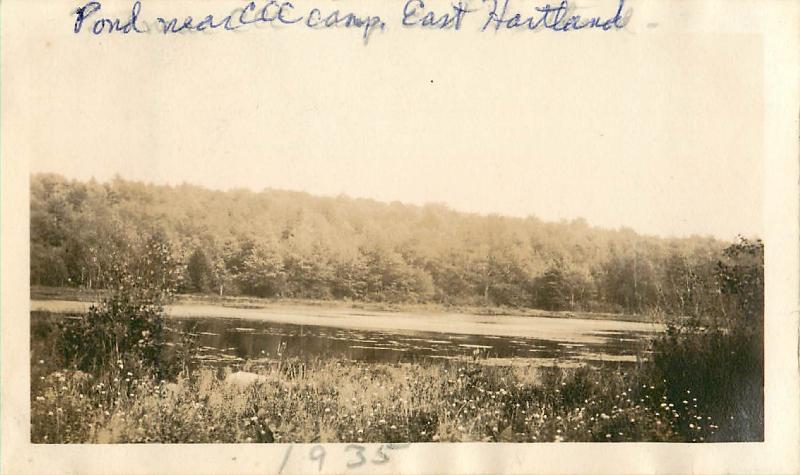 Pond near CCC camp. East Hartland
1935